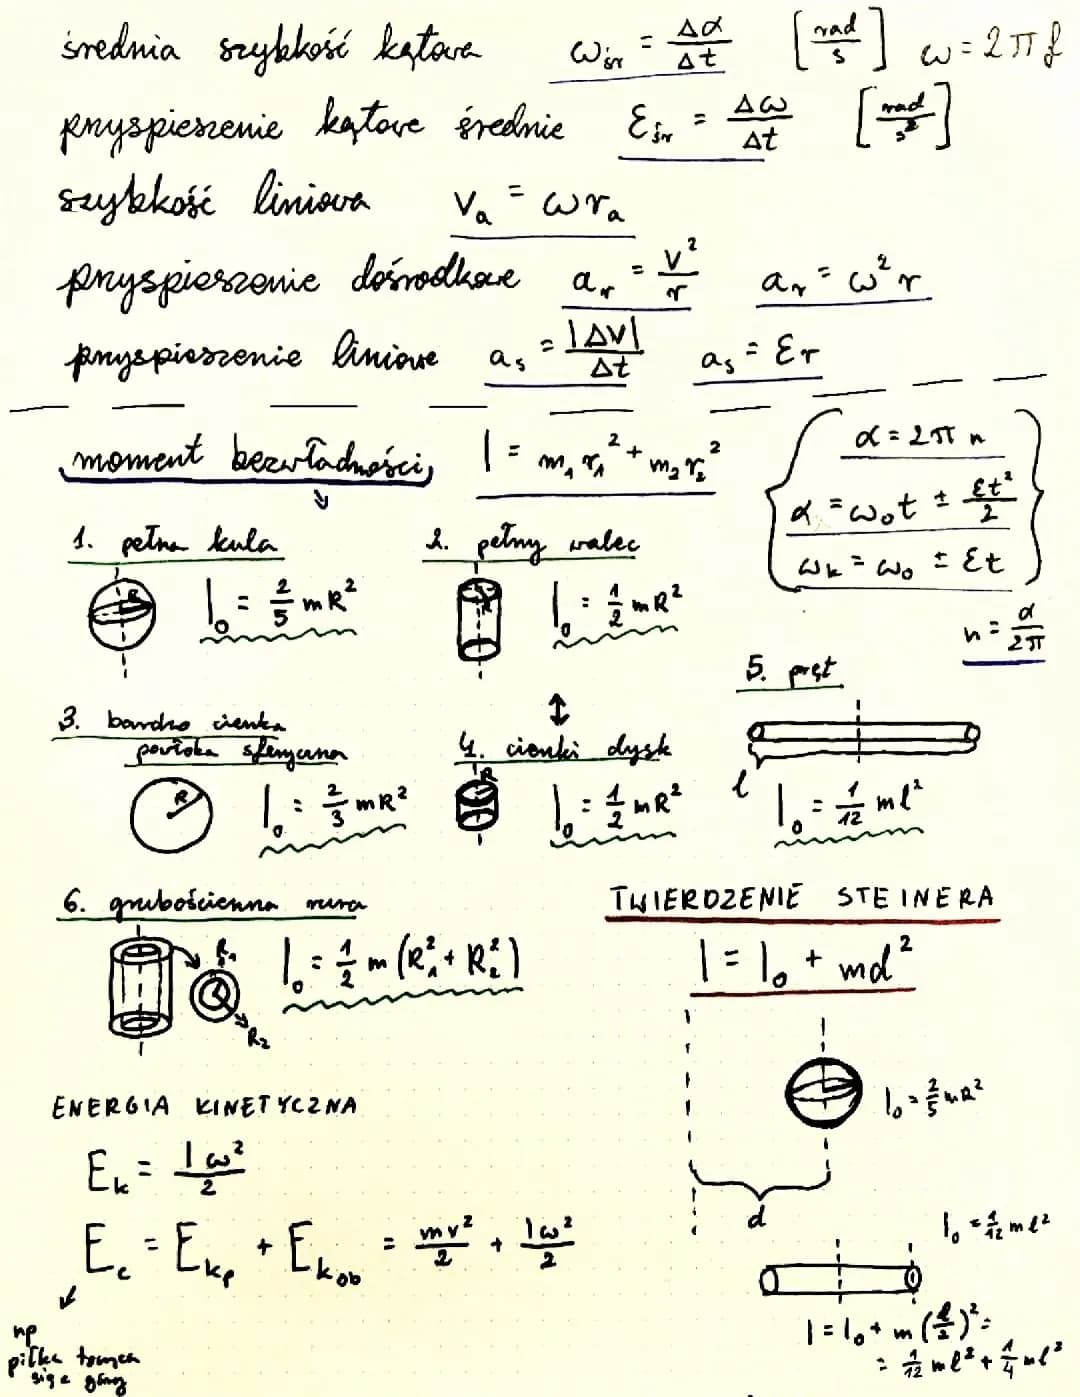 średnia szybkość kątowa ω śr = Δα/Δt [rad/s] ω = 2πf
przyspieszenie kątowe średnie ε śr = Δω/Δt [rad/s²]
szybkość liniowa v_a = ωr_a
przyspieszenie dośrodkowe a_r = v²/r a_r = ω²r
przyspieszenie liniowe a_s = |Δv|/Δt a_s = εr
moment bezwładności I = m₁r₁² + m₂r₂²
α = 2πn
α = ω₀t ± εt²/2
ω_k = ω₀ ± εt
n = α/2π
1. pełna kula
R
I₀ = 2/5 mR²
2. pełny walec
R
I₀ = 1/2 mR²
3. bardzo cienka
powłoka sferyczna
R
I₀ = 2/3 mR²
4. cienki dysk
R
I₀ = 1/2 mR²
5. pręt
l
I₀ = 1/12 ml²
6. grubościenna rura
R₁
R₂
I₀ = 1/2 m (R₁² + R₂²)
TWIERDZENIE STEINERA
I = I₀ + md²
I₀ = 2/5 mR²
d
I₀ = 1/12 ml²
I = I₀ + m (l/2)² =
= 1/12 ml² + 1/4 ml²
ENERGIA KINETYCZNA
E_k = Iω²/2
E_c = E_kp + E_kob = mv²/2 + Iω²/2
np
piłka tocząca
się z góry